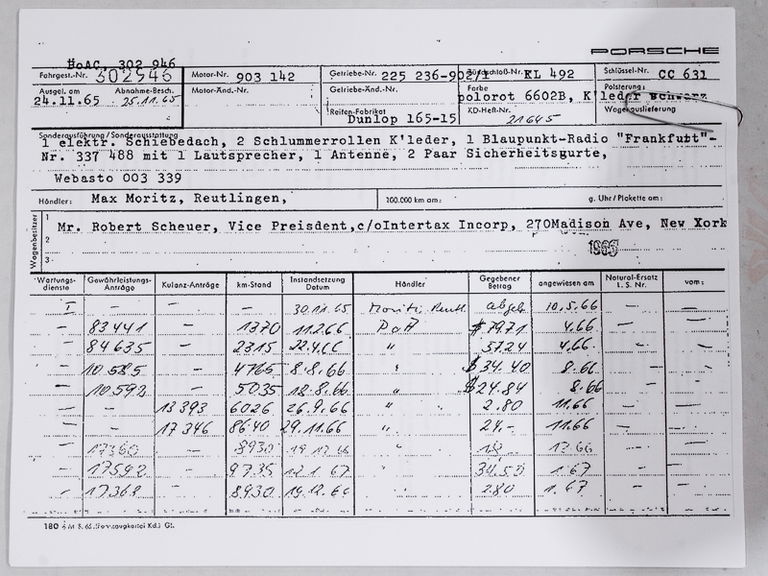 PORSCHE
HoAC, 302 946
Fahrgest.-Nr. 302946 Motor-Nr. 903 142 Getriebe-Nr. 225 236-902/1 KL 492 Schlüssel-Nr. CC 631
Ausgel. am Abnahme-Besch. Motor-Änd.-Nr. Getriebe-Änd.-Nr. Farbe Polsterung:
24.11.65 25.11.65 polorot 6602B, K'leder schwarz
Reifen-Fabrikat KD-Heft-Nr. Wagenauslieferung
Dunlop 165-15 21645
Sonderausführung / Sonderausstattung
1 elektr. Schiebedach, 2 Schlummerrollen K'leder, 1 Blaupunkt-Radio "Frankfutt"-
Nr. 337 488 mit 1 Lautsprecher, 1 Antenne, 2 Paar Sicherheitsgurte,
Webasto 003 339
Händler: Max Moritz, Reutlingen, 100.000 km am: g. Uhr / Plakette am:
Wagenbesitzer
1 Mr. Robert Scheuer, Vice Preisdent,c/oIntertax Incorp, 270Madison Ave, New York
2
3
Wartungs-dienste Gewährleistungs-Anträge Kulanz-Anträge km-Stand Instandsetzung Datum Händler Gegebener Betrag angewiesen am Natural-Ersatz L. S. Nr. vom:
I - - - 30.11.65 Moritz Reutl. abgeb 10.5.66
- 83441 - 1370 11.2.66 PoH $ 79.71 4.66 - -
- 84635 - 2315 22.4.66 " 57.24 4.66 - -
- 10585 - 4765 8.8.66 " $ 34.40 8.66 - -
- 10592 - 5035 18.8.66 " $24.84 8.66 - -
- - 13393 6026 26.9.66 " 2.80 11.66 - -
- - 17346 8640 29.11.66 " 24.- 11.66 - -
- 17360 - 8930 19.12.66 " 12.66 - -
- 17592 - 9735 12.1.67 " 34.50 1.67 - -
- 17368 - 8930 19.12.66 " 2.80 1.67 - -
180